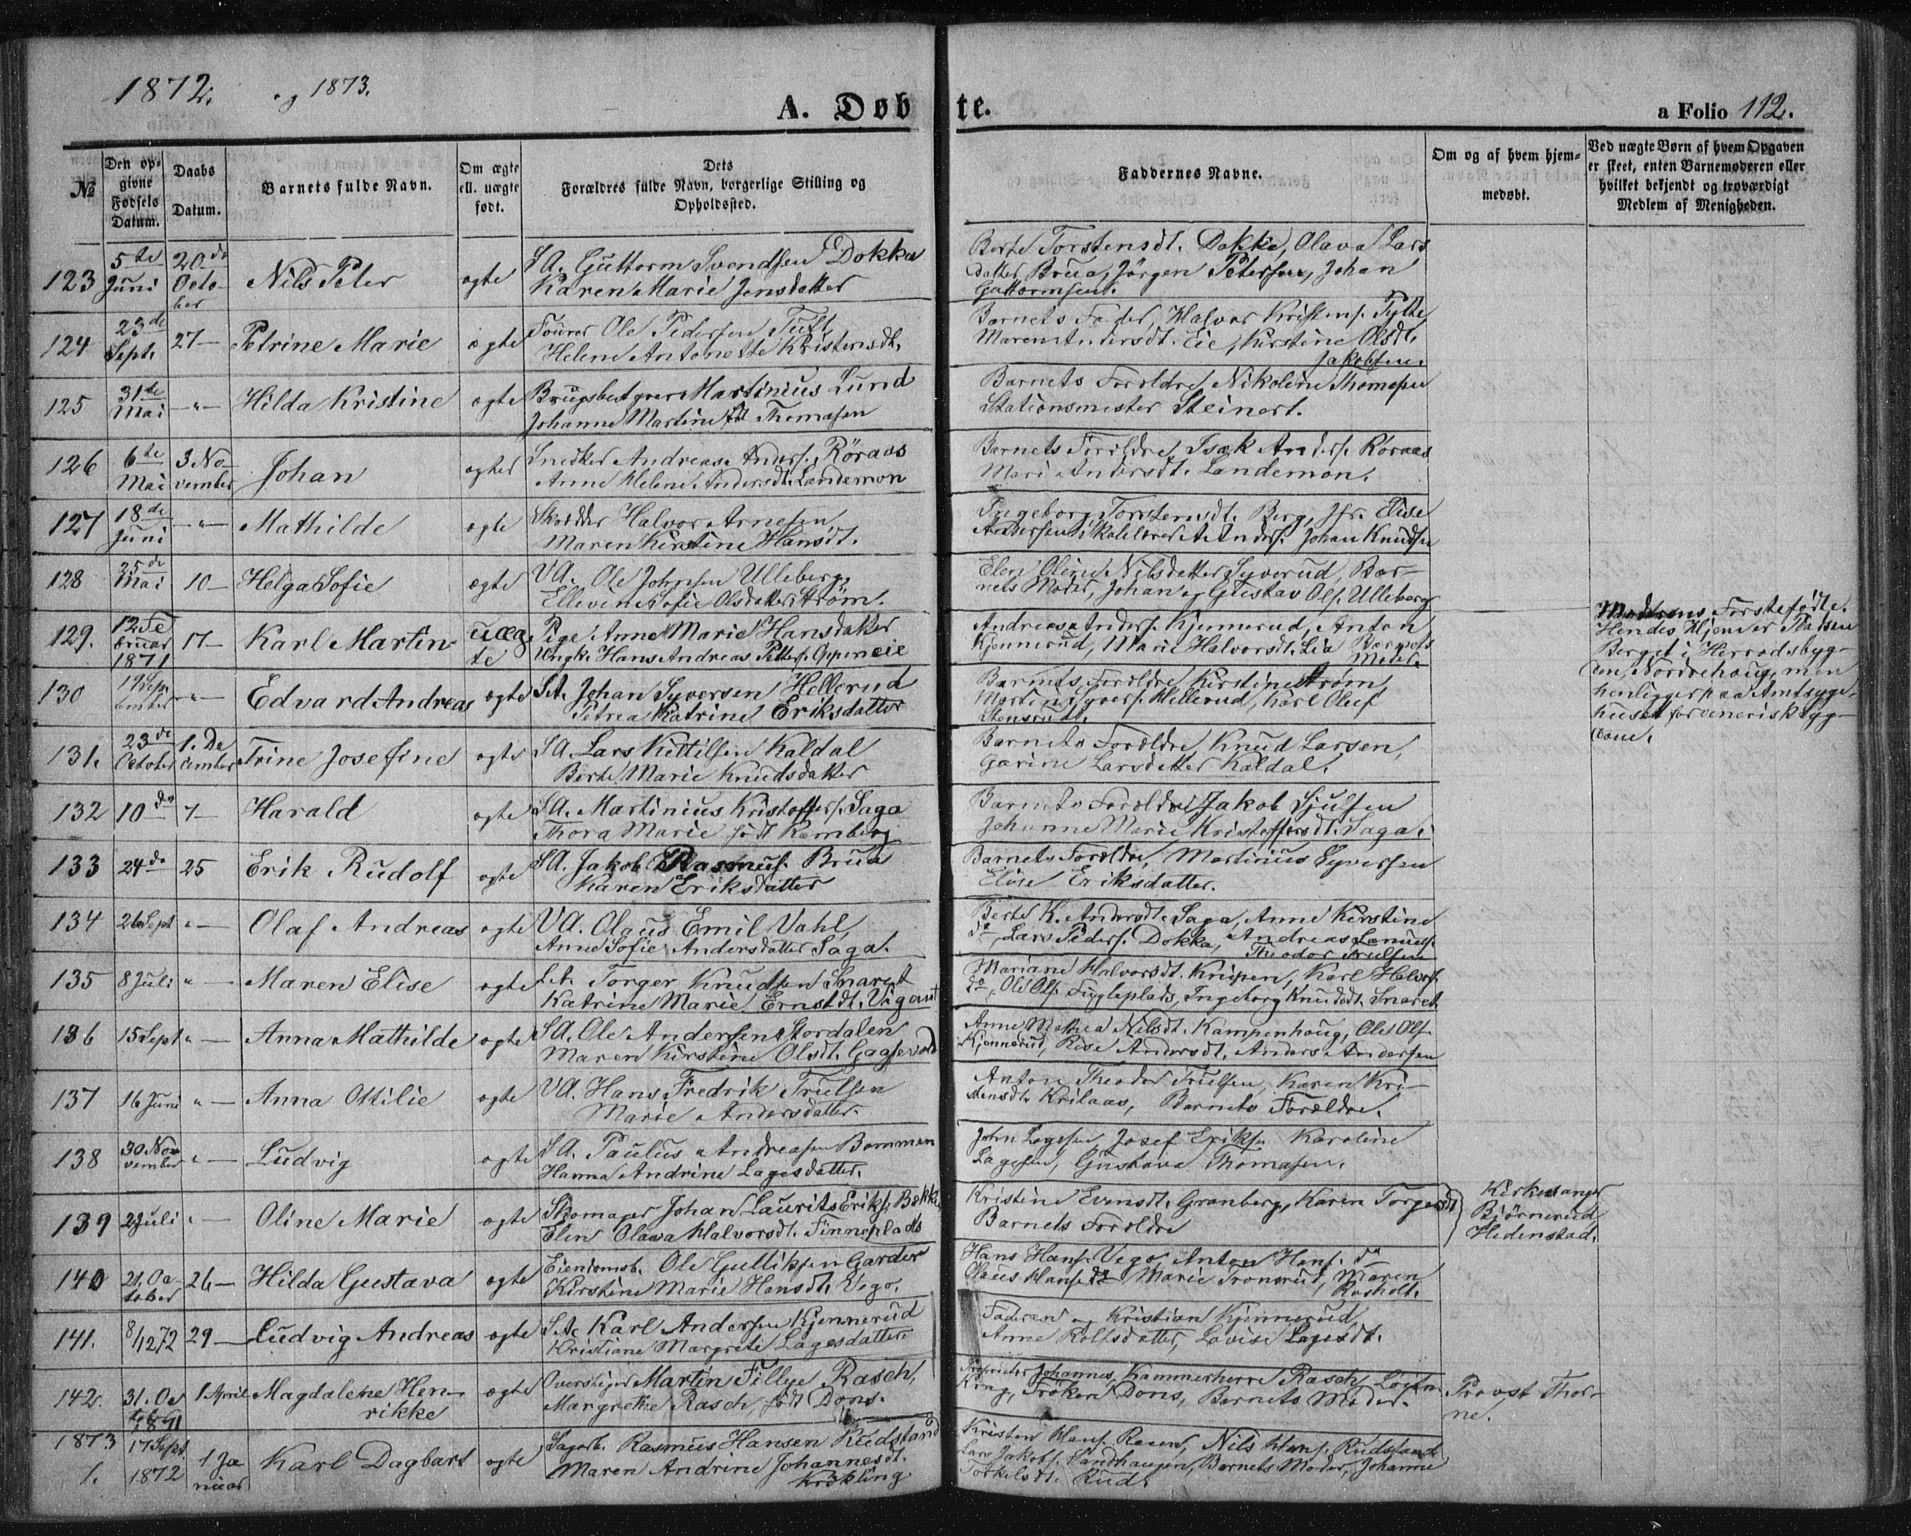 1872. og 1873.
A. Døbte.
a Folio 112.
№
Den opgivne Fødsels Datum.
Daabs Datum.
Barnets fulde Navn.
Om ægte ell. uægte født.
Dets Forældres fulde Navn, borgerlige Stilling og Opholdssted.
Faddernes Navne.
Om og af hvem hjemmedøbt.
Ved uægte Børn af hvem Opgaven er skeet, enten Barnemoderen eller hvilket bekjendt og troværdigt Medlem af Menigheden.
123 5te Juni 20de October Nils Peter ægte SA. Guttorm Svendsen Dokka Karen Marie Jensdatter Berte Torstensdt. Dokka, Olava Lars datter Brua, Jørgen Petersen, Johan Guttormsen.
124 23de Sept. 27 — Petrine Marie ægte Ole Pedersen Tuft Helene Antonette Kristensdt. Barnets Fader, Halvor Kristens. Tufte Maren Andersdt. Eie, Kirstine Olsdt. Jakobsen.
125 31de Mai — " — Hilda Kristine ægte Brugsbestyrer Martinius Lund Johanne Martine fdt Thomasen Barnets Forældre, Nikoline Thomasen Stationsmester Steinert.
126 6te Mai 3 November Johan ægte Snedker Andreas Anders. Røraas Anne Helene Andersdt. Landemon Barnets Forældre, Isak Anders. Røraas Mari Andersdt. Landemon.
127 18de Juni — " — Mathilde ægte Skrædder Halvor Arnesen Maren Kirstine Hansdt. Ingeborg Torstensdt. Berg, Jfr. Elise Andersen, Skolelærer A. Anders. Johan Knudsen
128 25de Mai 10 — Helga Sofie ægte VA. Ole Johnsen Ulleberg, Ellevine Sofie Olsdatter Strøm. Elen Oline Nilsdatter Syverud, Barnets Moder, Johan og Gustav Ols. Ulleberg
129. 12 Februar 1871 17 — Karl Martin uægte Pige Anne Marie Hansdatter Ungk. Hans Andreas Petters. Oppineie Andreas Anders. Kjennerud, Anton Kjennerud, Marie Halvorsdt. Lia Barnets Moder. Moderens Førstefødte. Hendes Hjem er Pladsen Berget i Herradsbygden, Norderhoug, men henligger paa Amtssygehuset for venerisk Sygdom.
130 19 September — " — Edvard Andreas ægte SA. Johan Syversen Hellerud Petrea Katrine Eriksdatter Barnets Forældre, Kirstine Strøm, Martin Syvers. Hellerud, Karl Oluf Stensrud.
131. 23de October 1. December Trine Josefine ægte SA. Lars Kittilsen Kaldal Berte Marie Knudsdatter Barnets Forældre, Knud Larsen, Garine Larsdatter Kaldal.
132 10 do 7 — Harald ægte SA. Martinius Kristoffers. Saga Thora Marie født Ramberg Barnets Forældre, Jakob Sjulsen Johanne Marie Kristoffersdt. Saga.
133 24 do 25 Erik Rudolf ægte SA. Jakob Rasmus. Brua Karen Eriksdatter Barnets Forældre, Martinius Syversen Elise Eriksdatter.
134 26 Sept " — Olaf Andreas ægte VA. Olaus Emil Vahl, Anne Sofie Andersdatter Saga. Berte K. Andersdt. Saga, Anne Kirstine do, Lars Peders. Dokka, Andreas
135 8 Juli " — Maren Elise ægte Torger Knudsen Snaret Katrine Marie Ernstdt. Vigant Theodor Trulsen Mariane Halvorsdt. Karl Halvors. do, Ole Ols. Fugleplads, Ingeborg Knudsdt. Snaret.
136 15 Sept " — Anna Mathilde ægte SA. Ole Andersen Stordalen Maren Kirstine Olsdt. Gaasevold Anne Mathea Nilsdt. Kampenhoug, Ole Ols. Kjennerud, Rise Andersdt. Anders Andersen
137 16 Juni " — Anna Ottilie ægte VA. Hans Fredrik Trulsen Marie Andersdatter. Anton Theodor Trulsen, Karen Kristensdt. Barnets Forældre.
138 30 November " — Ludvig ægte SA. Paulus Andreasen Bommen Hanna Andrine Lagesdatter. John Lagesen, Josef Eriks. Karoline Lagesen, Gustava Thomasen.
139 2 Juli " — Oline Marie ægte Skomager Johan Laurits Eriks. Bækk. Elen Olava Halvorsdt. Finneplads Kristine Evensdt. Granberg, Karen Torgersdt Barnets Forældre Kirkesanger Bjørnerud, Hedenstad.
140 21. October 26 — Hilda Gustava ægte Eiendomsb. Ole Gulliksen Garder Kirstine Marie Hansdt. Vego. Hans Hans. Vego, Anton Hans. do Olaus Hans. do Marie Tronrud, Maren Rosholt.
141. 8/12 72 29 — Ludvig Andreas ægte SA. Karl Andersen Kjennerud Kristiane Margrete Lagesdatter Faderen og Kristian Kjennerud, Anne Rolfsdatter, Lovise Lagesdt.
142. 31. October 1871 1 April Magdalene Henrikke ægte Overstiger Martin Fillye Rasch, Margrethe Rasch, født Dons. Johannes, Kammerherre Rasch, King, Frøken Dons, Barnets Moder. Provst Thorne.
1873 1. 17 Sept 1872 1 Januar Karl Dagbart ægte Sagarb. Rasmus Hansen Rudstand Maren Andrine Johannesdt. Krøkling Kristen Hans. Nils Hans. Rudstand Lars Jakobs. Sandhaugen, Barnets Moder, Johanne Torkelsdt. Rud.